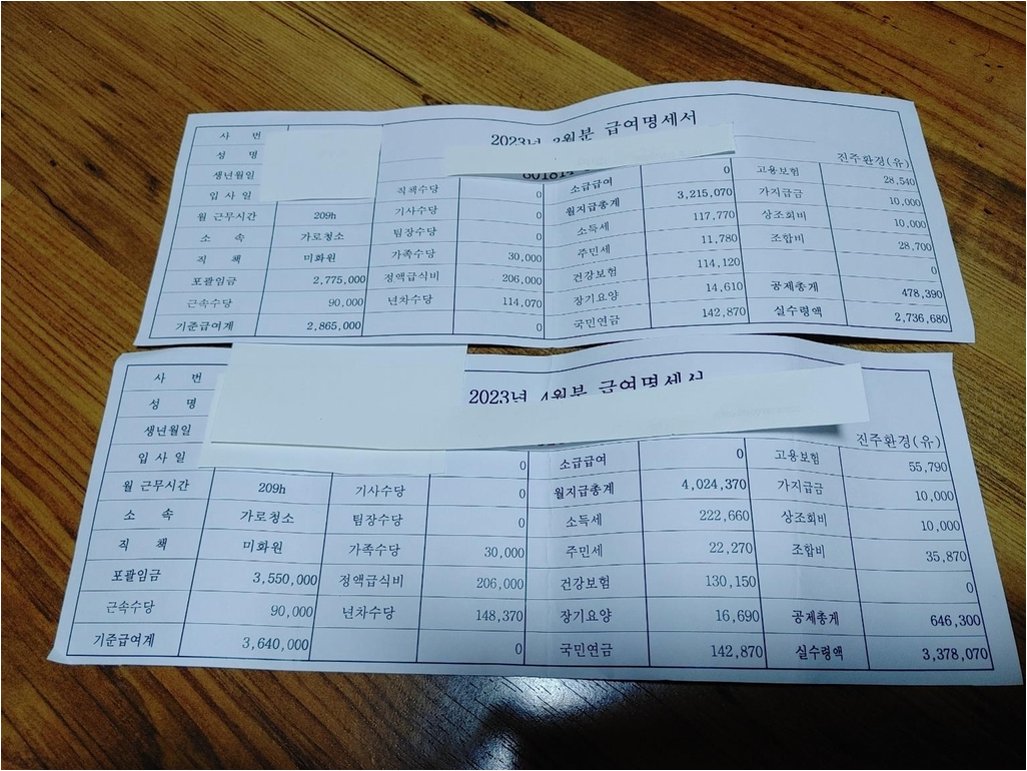 2023년 2월분 급여명세서
사 번
성 명 진주환경(유)
생년월일 직책수당 0 소급급여 0 고용보험 28,540
입 사 일 기사수당 0 월지급총계 3,215,070 가지급금 10,000
월 근무시간 209h 팀장수당 0 소득세 117,770 상조회비 10,000
소 속 가로청소 가족수당 30,000 주민세 11,780 조합비 28,700
직 책 미화원 정액급식비 206,000 건강보험 114,120 0
포괄임금 2,775,000 년차수당 114,070 장기요양 14,610 공제총계 478,390
근속수당 90,000 0 국민연금 142,870 실수령액 2,736,680
기준급여계 2,865,000
2023년 4월분 급여명세서
사 번
성 명
생년월일 진주환경(유)
입 사 일 0 소급급여 0 고용보험 55,790
월 근무시간 209h 기사수당 0 월지급총계 4,024,370 가지급금 10,000
소 속 가로청소 팀장수당 0 소득세 222,660 상조회비 10,000
직 책 미화원 가족수당 30,000 주민세 22,270 조합비 35,870
포괄임금 3,550,000 정액급식비 206,000 건강보험 130,150 0
근속수당 90,000 년차수당 148,370 장기요양 16,690 공제총계 646,300
기준급여계 3,640,000 0 국민연금 142,870 실수령액 3,378,070